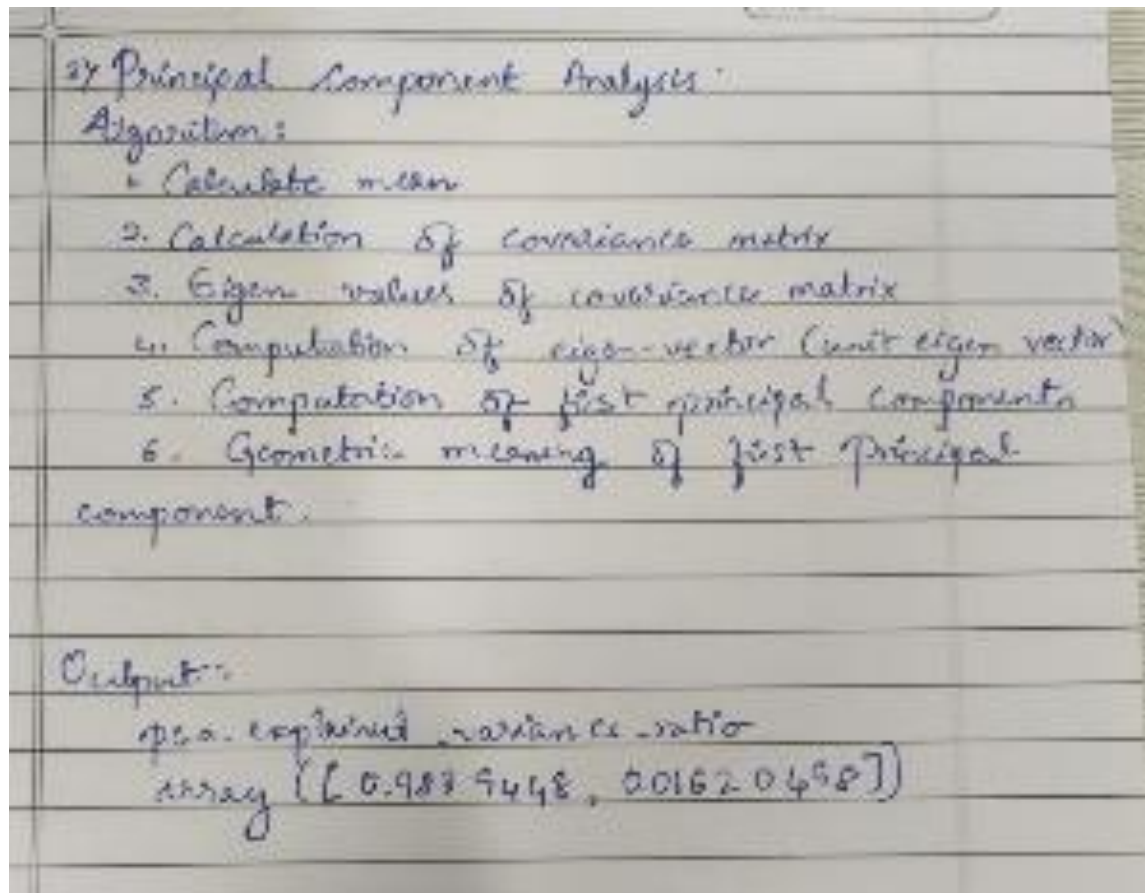 2) Principal Component Analysis.
Algorithm:
1. Calculate mean
2. Calculation of covariance matrix
3. Eigen values of covariance matrix
4. Computation of eigen-vector (unit eigen vector)
5. Computation of first principal components
6. Geometric meaning of first Principal
component.
Output:
pca.explained_variance_ratio
array ([ 0.983